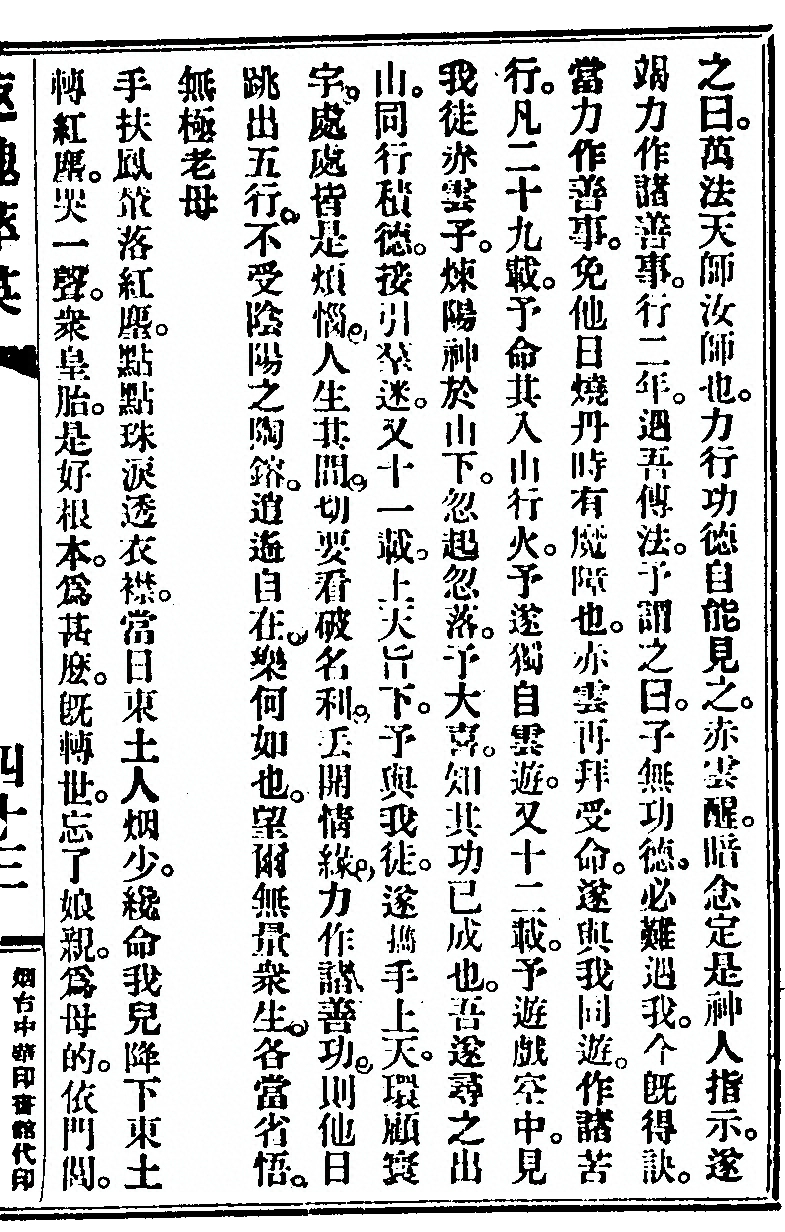 之曰。萬法天師汝師也。力行功德自能見之。赤雲醒。暗念定是神人指示。遂
竭力作諸善事。行二年。遇吾傳法。予謂之曰。子無功德。必難遇我。今既得訣。
當力作善事。免他日燒丹時有魔障也。赤雲再拜受命。遂與我同遊。作諸苦
行。凡二十九載。予命其入山行火。予遂獨自雲遊。又十二載。予遊戲空中。見
我徒赤雲子。煉陽神於山下。忽起忽落。予大喜。知其功已成也。吾遂尋之出
山。同行積德。接引羣迷。又十一載。上天旨下。予與我徒。遂攜手上天。環顧寰
宇。處處皆是煩惱。人生其間。切要看破名利。丟開情緣。力作諸善功。則他日
跳出五行。不受陰陽之陶鎔。逍遙自在。樂何如也。望爾無量衆生。各當省悟。
無極老母
手扶鳳輦落紅塵。點點珠淚透衣襟。當日東土人烟少。纔命我兒降下東土
轉紅塵。哭一聲。衆皇胎。是好根本。爲甚麼。旣轉世。忘了娘親。爲母的。依門閭。
四十三
烟台中華印書館代印